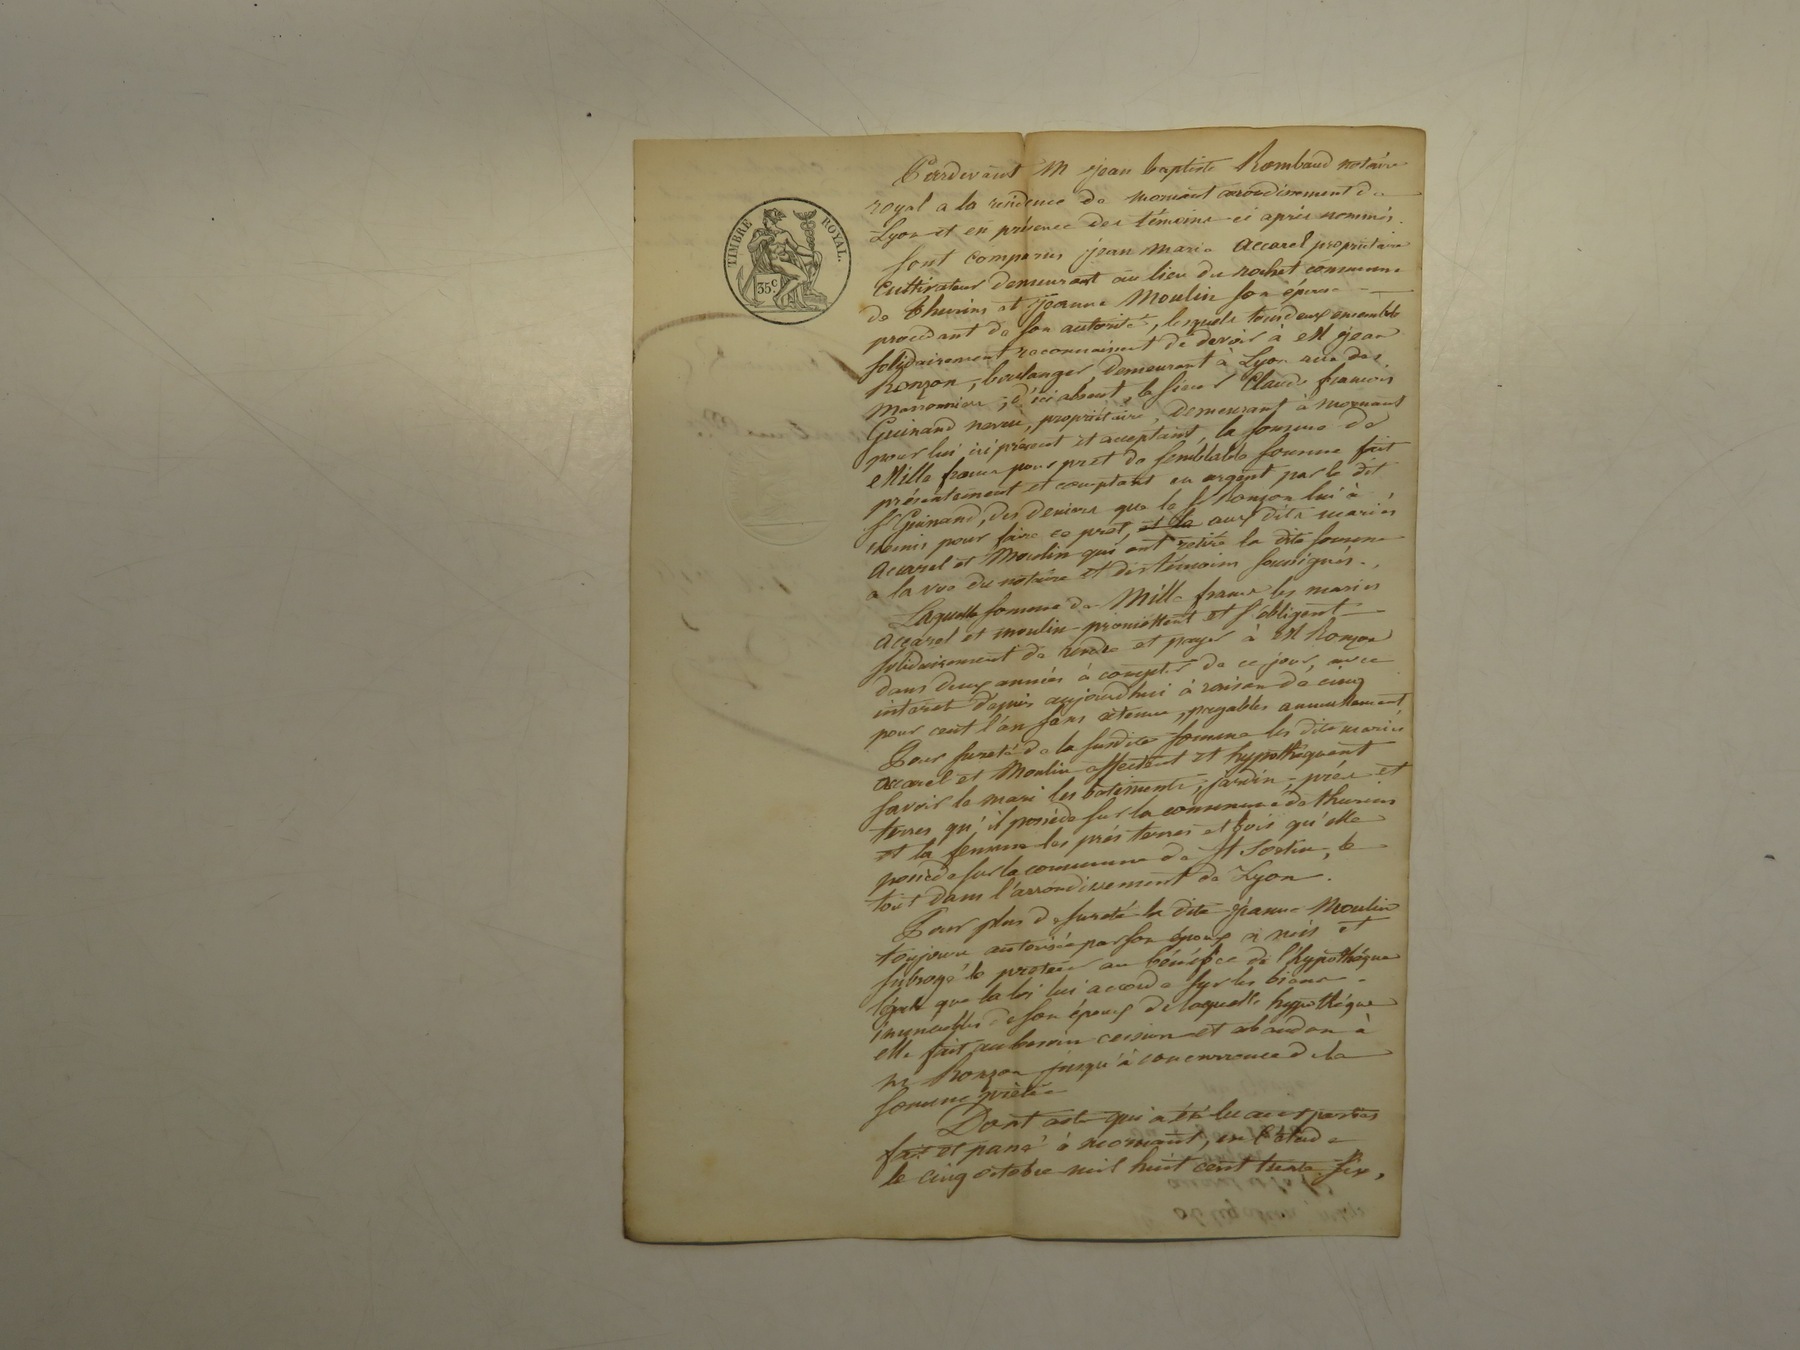 TIMBRE ROYAL.
35 c.
Pardevant M Jean baptiste Rambaud notaire
royal a la residence de mornant arrondissement de
Lyon et en présence des témoins ci après nommés.
Sont comparus jean marie accarel propriétaire
cultivateur demeurant au lieu du rochet commune
de thurins et jeanne Moulin son épouse
procedant de son autorité, lesquels tous deux ensemble
solidairement reconnaissent de devoir à M jean
Ronzon, boulanger, demeurant à Lyon rue des
marronniers, d'ici absent, le sieur Claude françois
Guinand neveu, propriétaire, demeurant à mornant
pour lui ici présent et acceptant, la somme de
Mille francs pour pret de semblable somme fait
présentement et comptant en argent par le dit
Sr Guinand, des deniers que le Sr Ronzon lui à
remis pour faire ce pret, et la aux dits mariés
accarel et Moulin qui ont retiré la dite somme
a la vue du notaire et des témoins soussignés.
Laquelle somme de Mille francs les mariés
accarel et moulin promettent et s'obligent
solidairement de rendre et payer à M Ronzon
dans deux années à compter de ce jour, avec
interet depuis aujourdhui à raison de cinq
pour cent l'an sans retenue, payables annuellement
Pour sureté de la susdite somme les dits mariés
accarel et Moulin affectent et hypothéquent
savoir le mari les batiments, jardin, prés et
terres qu'il possède sur la commune de thurins
et la femme les prés terres et bois qu'elle
possède sur la commune de St Sorlin, le
tout dans l'arrondissement de Lyon.
Pour plus de sureté la dite jeanne Moulin
toujours autorisée par son époux a mis et
subrogé le preteur au bénéfice de l'hypothéque
légale que la loi lui accorde sur les biens
immeubles de son époux de laquelle hypothéque
elle fait au besoin cession et abandon à
M Ronzon jusqu'à concurrence de la
somme pretée
Dont acte qui a été lu aux parties
fait et passé à mornant, en l'étude
le cinq octobre mil huit cent trente six,